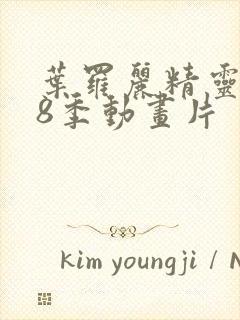 葉羅麗精靈
8季動畫片
kim youngji / N